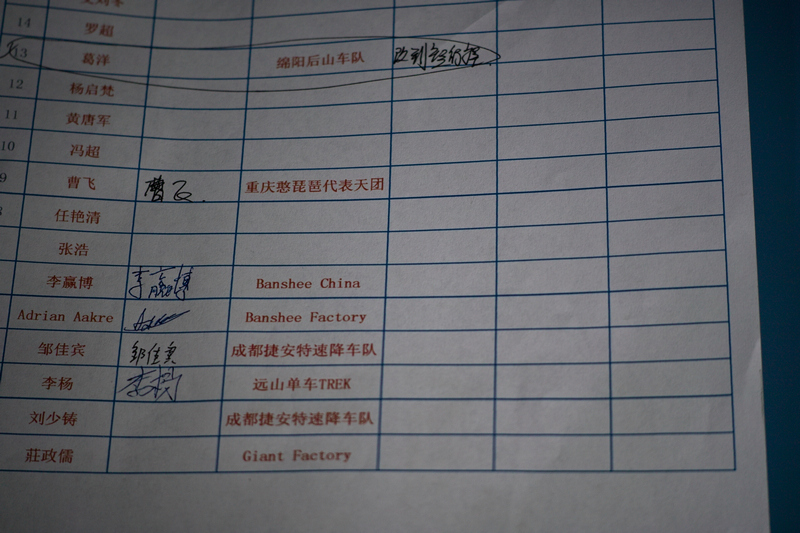 14 罗超
13 葛洋 绵阳后山车队
12 杨启梵
11 黄唐军
10 冯超
9 曹飞 曹飞 重庆憨琵琶代表天团
任艳清
张浩
李赢博 李赢博 Banshee China
Adrian Aakre Banshee Factory
邹佳宾 邹佳宾 成都捷安特速降车队
李杨 李杨 远山单车TREK
刘少铸 成都捷安特速降车队
莊政儒 Giant Factory